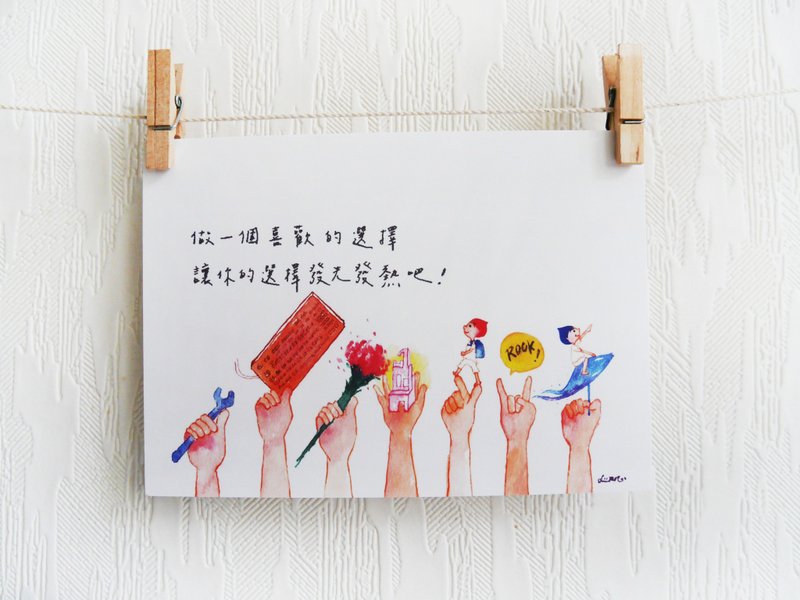 做一個喜歡的選擇
讓你的選擇發光發熱吧！
ROCK!